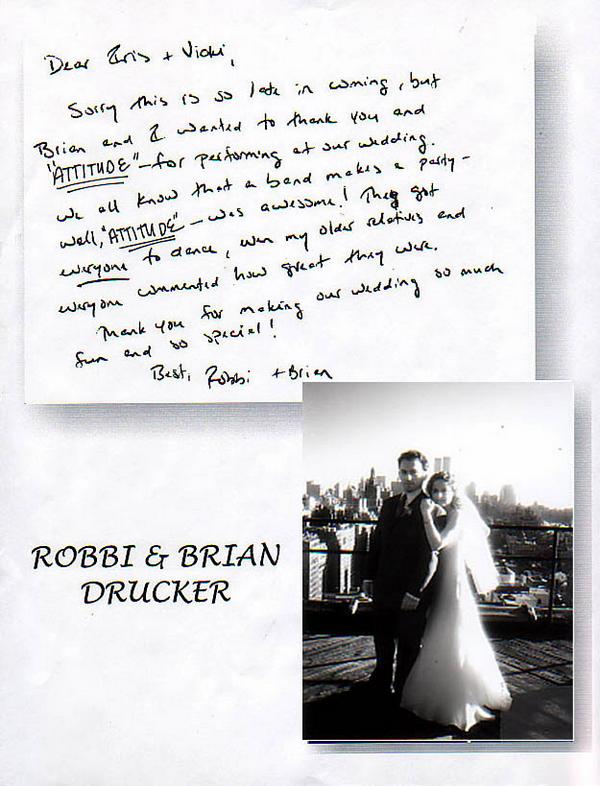 Dear Kris + Vicki,
Sorry this is so late in coming, but
Brian and I wanted to thank you and
"ATTITUDE" - for performing at our wedding.
We all know that a band makes a party -
well, "ATTITUDE" - was awesome! They got
everyone to dance, even my older relatives and
everyone commented how great they were.
Thank you for making our wedding so much
fun and so special!
Best, Robbi + Brian
ROBBI & BRIAN
DRUCKER